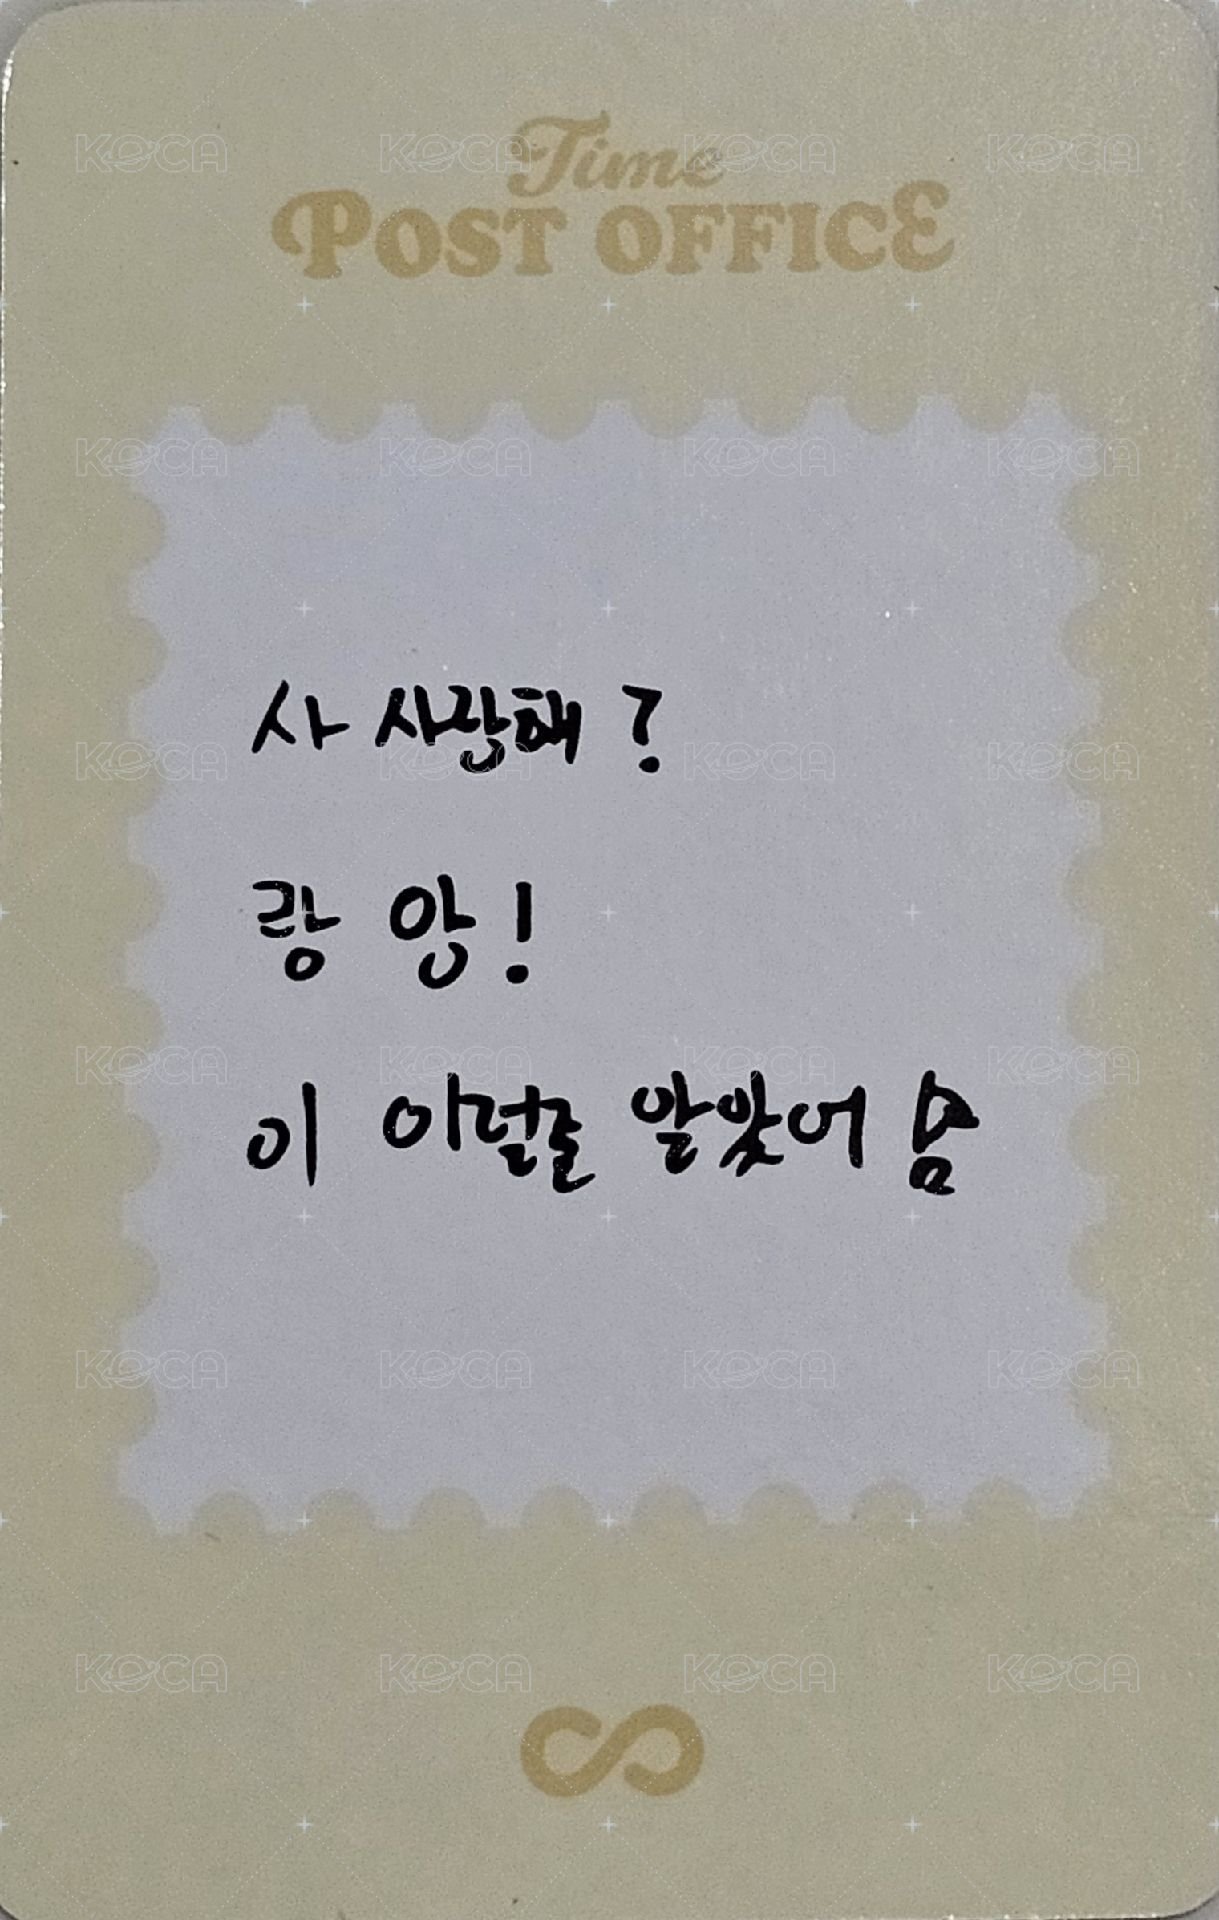 Time
POST OFFICE
사 사랑해 ?
랑 앙 !
이 이럴줄 알았어